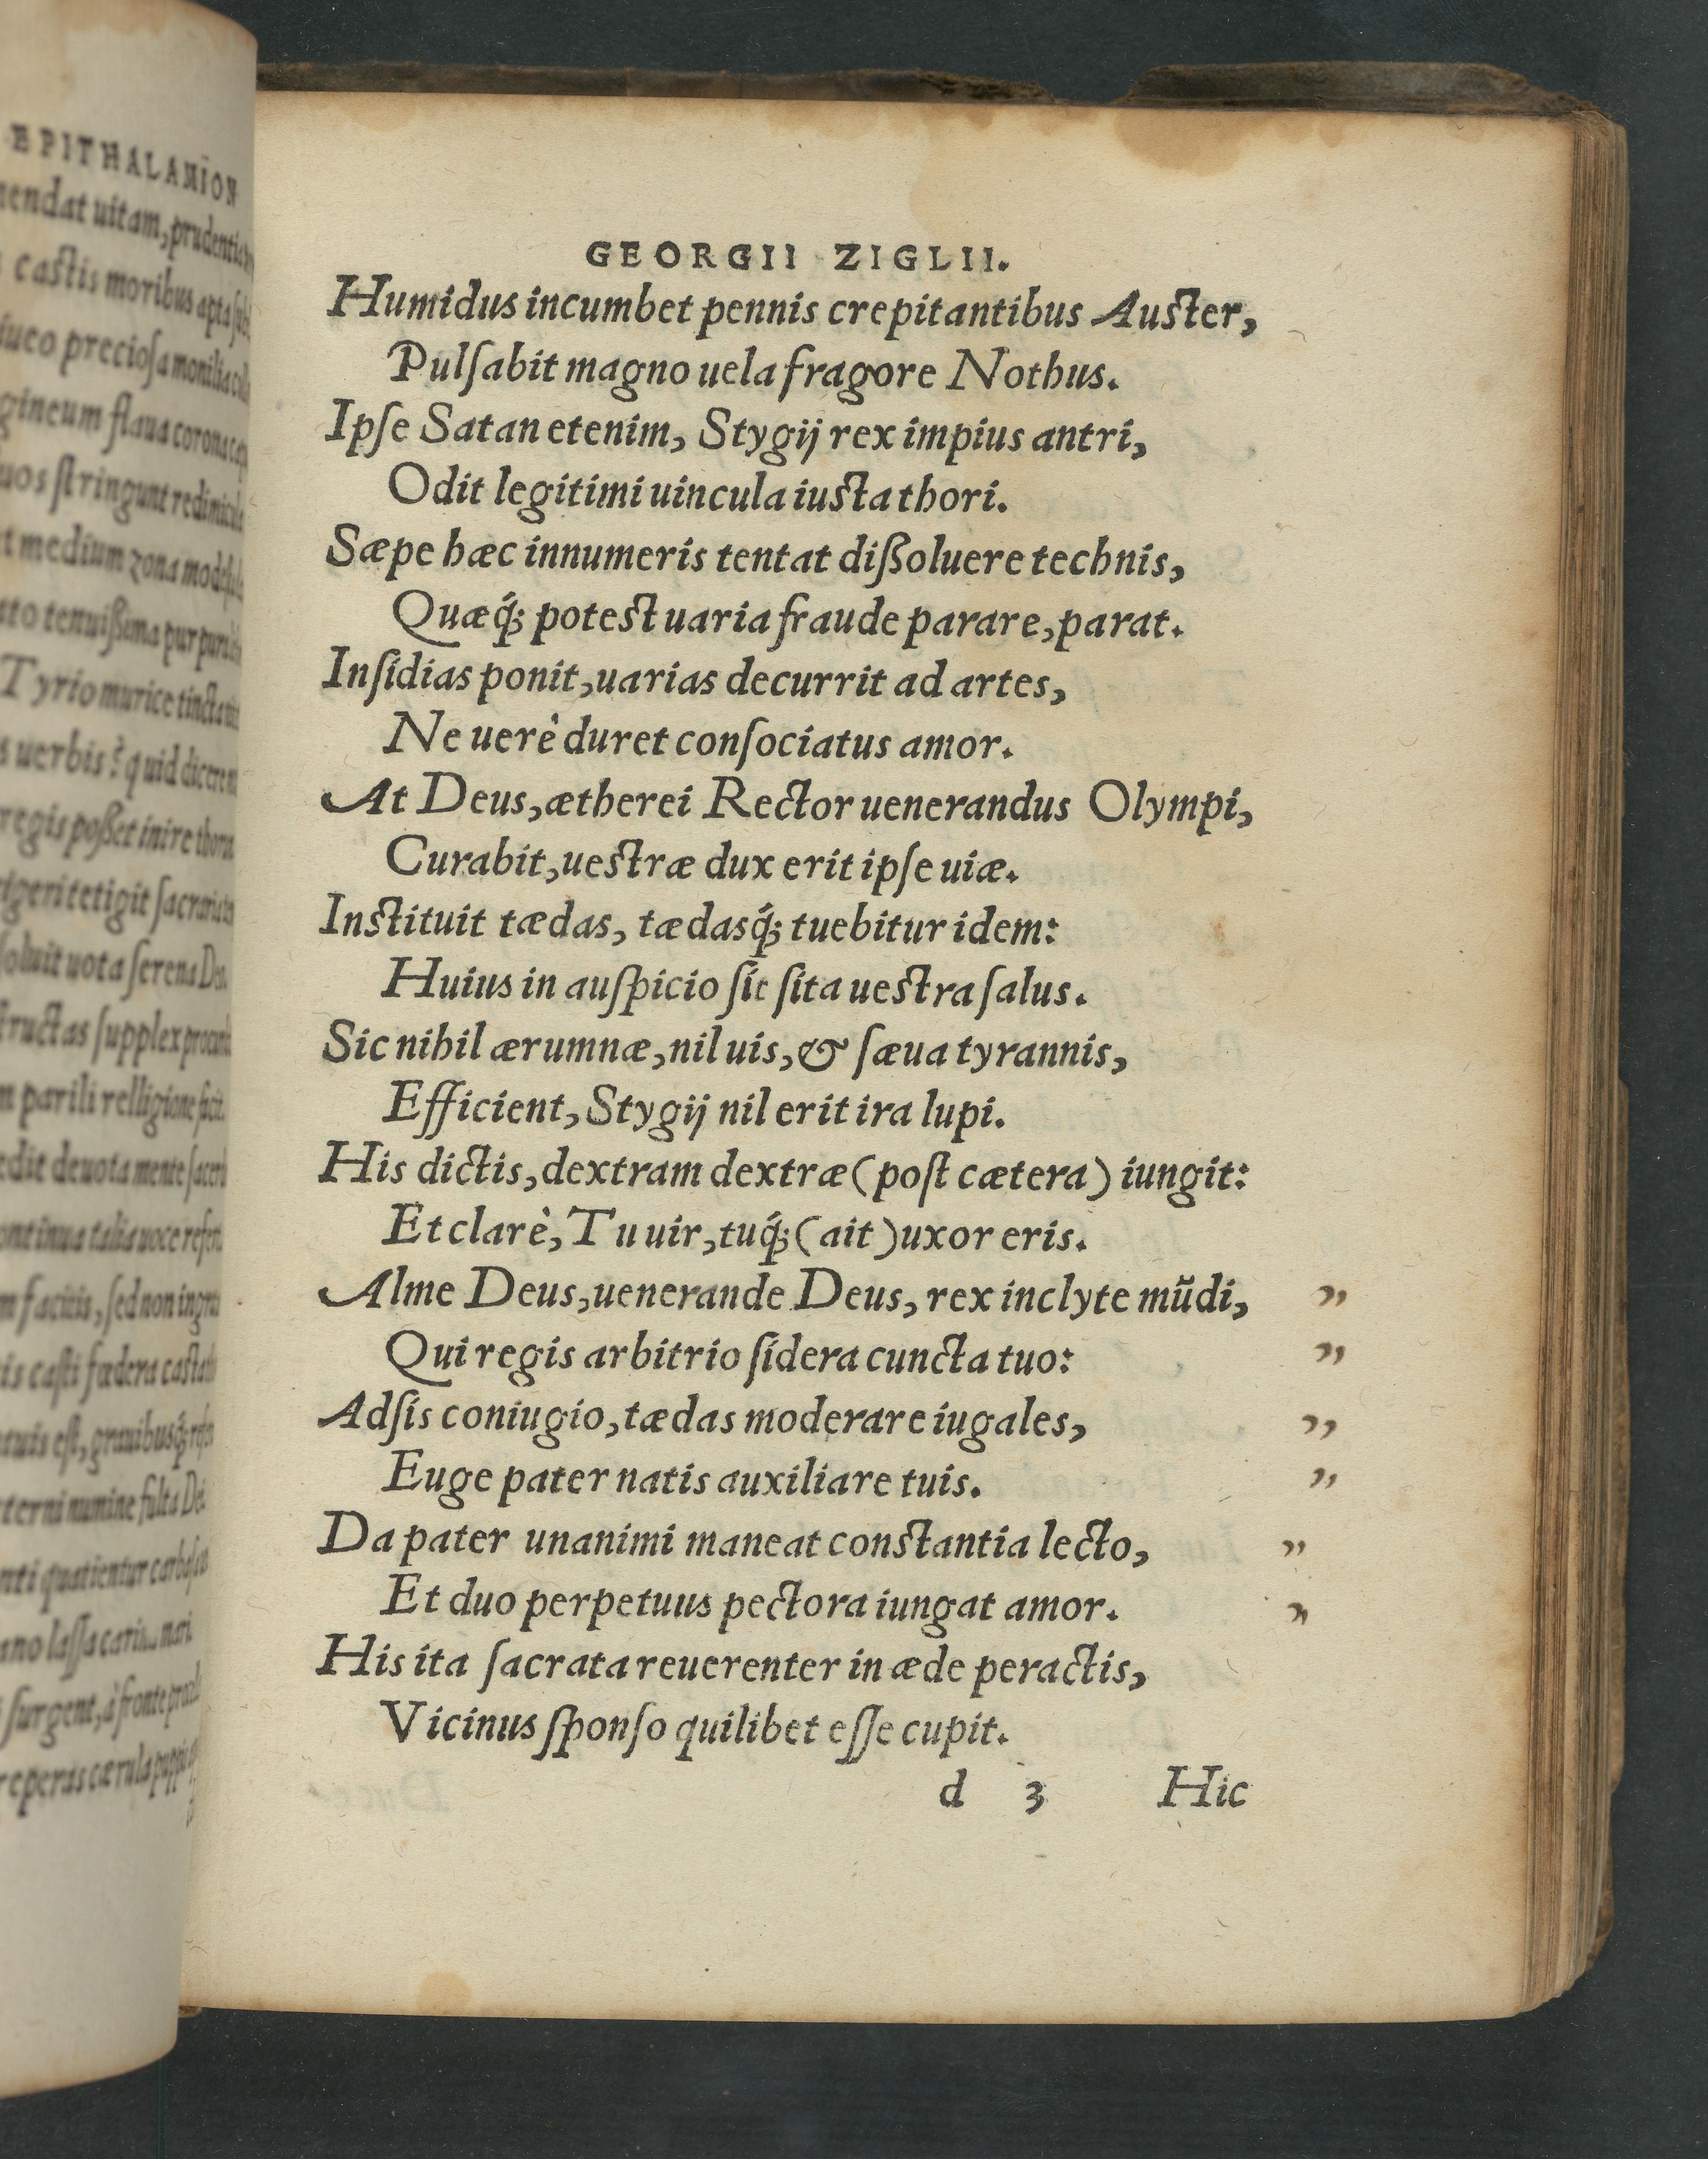 EPITHALAMIŌN
uitam, prudenti
castis moribus apta
preciosa monilia
flaua corona
stringunt redimicula
medium zona
tenuißima
Tyrio murice tincta
uerbis? quid
regis poßet inire
tetigit
uota serena
supplex
parili relligione
deuota mente
talia uoce
facitis, sed non
casti fœdera
est, grauibusq́;
numine fulta Dei
quatientur
lassa mari
surgent, à fronte
cærula
GEORGII ZIGLII.
Humidus incumbet pennis crepitantibus Auster,
Pulſabit magno uela fragore Nothus.
Ipſe Satan etenim, Stygij rex impius antri,
Odit legitimi uincula iusta thori.
Sæpe hæc innumeris tentat dißoluere technis,
Quæq́; potest uaria fraude parare, parat.
Inſidias ponit, uarias decurrit ad artes,
Ne uerè duret conſociatus amor.
At Deus, ætherei Rector uenerandus Olympi,
Curabit, uestræ dux erit ipſe uiæ.
Instituit tædas, tædasq́; tuebitur idem:
Huius in auſpicio ſit ſita uestra ſalus.
Sic nihil ærumnæ, nil uis, & ſæua tyrannis,
Efficient, Stygij nil erit ira lupi.
His dictis, dextram dextræ (poſt cætera) iungit:
Et clarè, Tu uir, tuq́; (ait) uxor eris.
Alme Deus, uenerande Deus, rex inclyte mũdi, ”
Qui regis arbitrio ſidera cuncta tuo: ”
Adſis coniugio, tædas moderare iugales, ”
Euge pater natis auxiliare tuis. ”
Da pater unanimi maneat constantia lecto, ”
Et duo perpetuus pectora iungat amor. ”
His ita ſacrata reuerenter in æde peractis,
Vicinus ſponſo quilibet eſſe cupit.
d 3 Hic